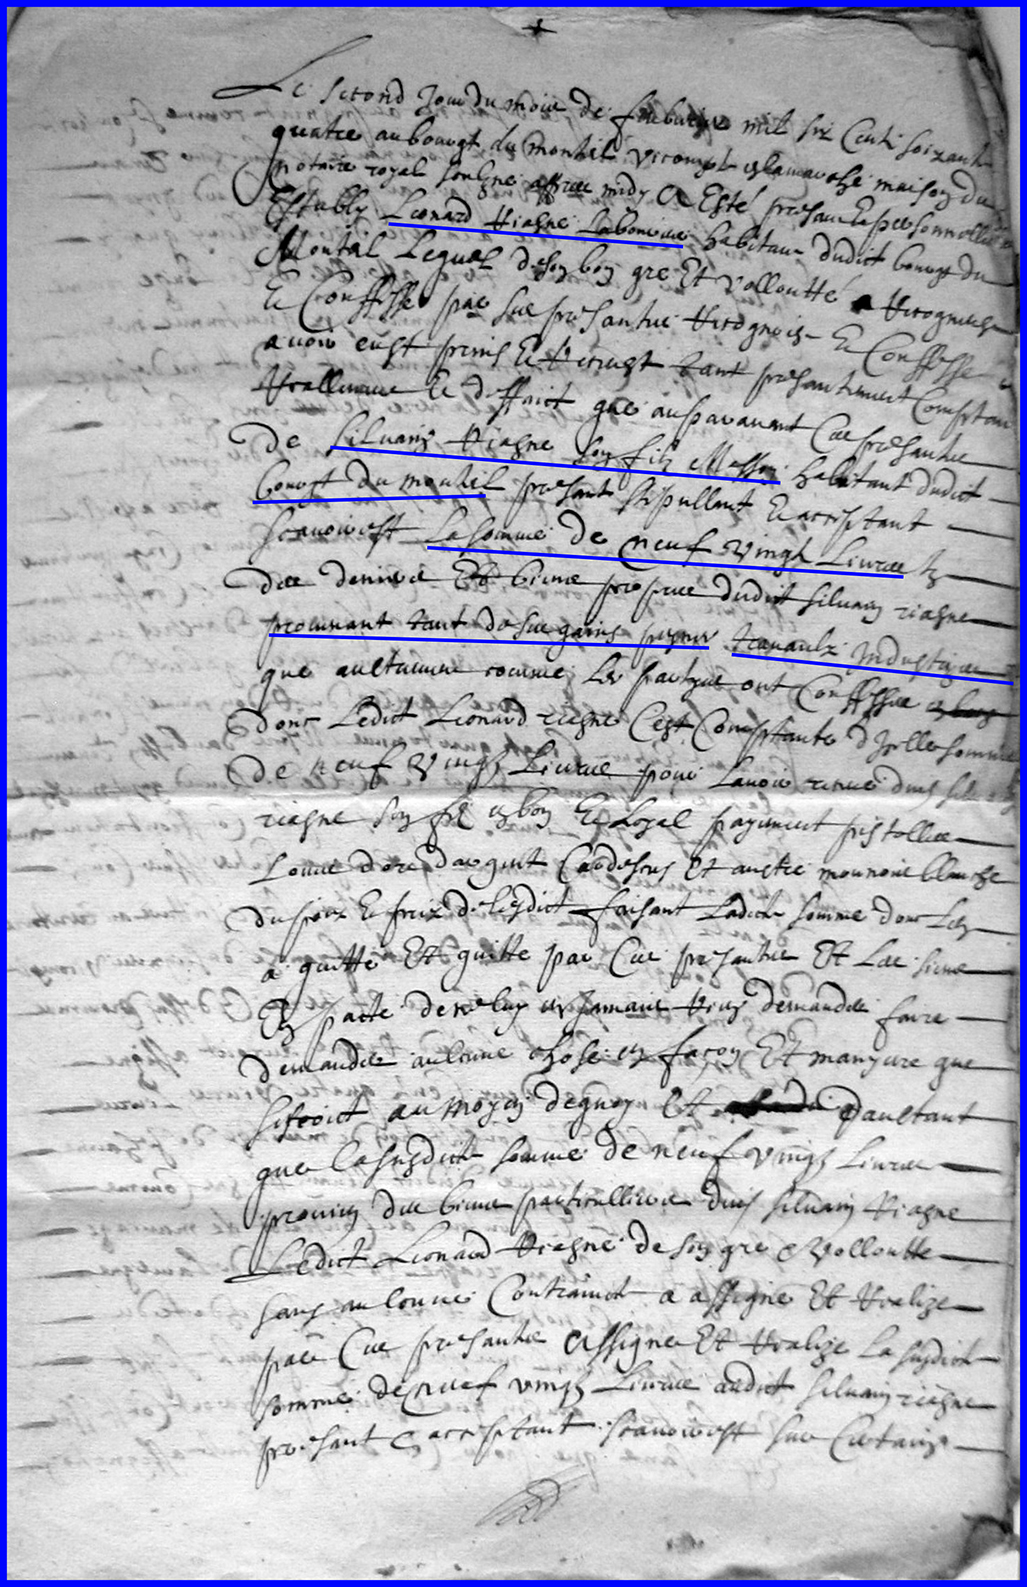 Le second Jour du mois de febvrier mil six Cents soixant
quatre au bourgt du monteil vicompté maison du
notaire royal soubzne appres midy A Esté presant personnelle
Estably Leonard riagne Labonne habitant dudict bourgt du
Monteil Lequel de son bon gre Et vollontté a recogneu
Et Confesse par sue presantes recognois Et Confesse
avoir eust prins Et receust tant presantement Comptan
reallemant Et deffaict que auparavant Ces presantes
de silvain riagne son filz Masson habitant dudict
bourgt du monteil presant stippullant Et acceptant
scavoir est La somme de neuf vingts Livres tz
des deniers Et biens propres dudict silvain riagne
provenant tant de sue gains travaulx Industrie
que aultremen comme Les partyes ont Confesse
dont Ledict Leonard riagne C'est Comptante d'Iselle somme
de neuf vingts Livres pour Lavoir receue dud sil
riagne son filz en bon Et Loyal payement pistolles
Louis d'or d'argent Cardesens Et aultre monnoie blanche
du poix Et prix de Lesdict faisant Ladicte somme dont Les
a quitté Et quitte par Ces presantes Et Les siens
En pacte de ne luy en Jamais riens demander faire
demander aulcune chose en facon Et manyere que
se soict au moyen dequoy Et daultant
que La susdicte somme de neuf vingts Livres
provien des biens particulliers dud silvain riagne
Ledict Leonard riagne de son gre Et vollontte
sans aulcune Contrainct a assigne Et realize
par Ces presantes Assigne Et realize La susdicte
somme de neuf vingts Livres audict silvain riagne
presant Et acceptant scavoir est sur Certain